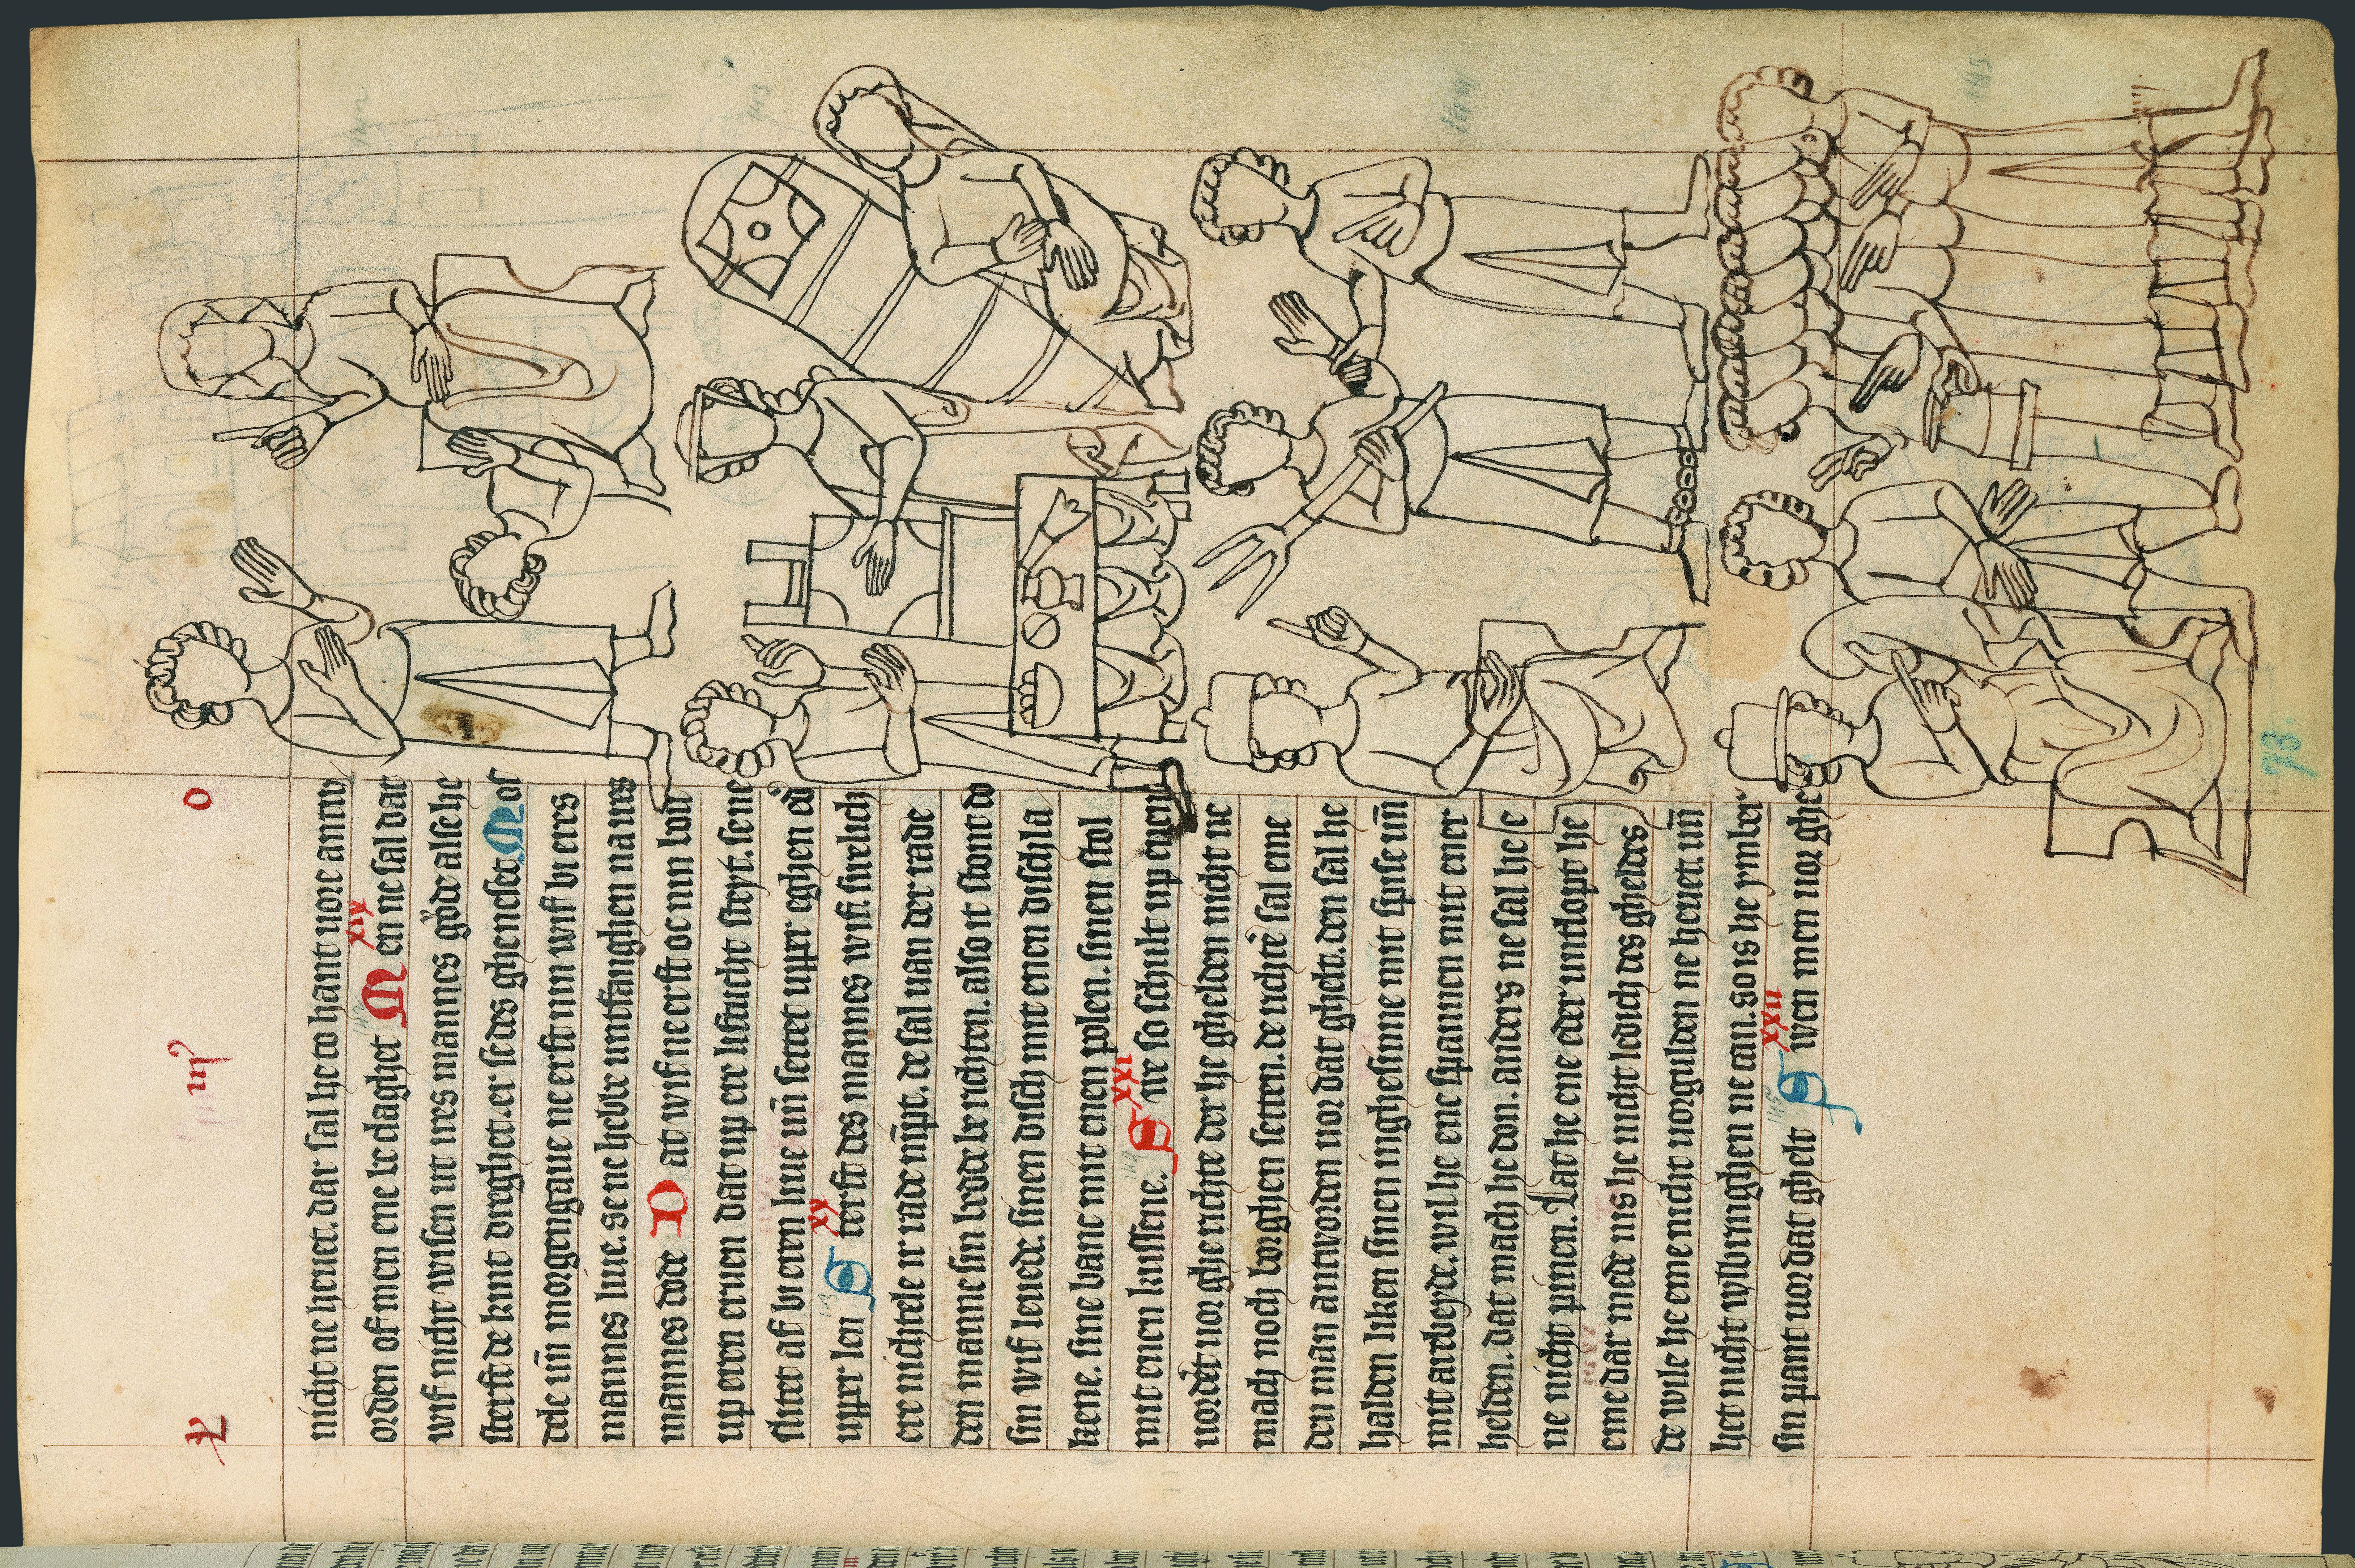 o
nicht ne heuet. dar sal he to hant uore antw
orden of men ene be claghet xix Men ne sal dat
wif nicht wisen ut ires mannes gode alse he
sterft de kint dreghet. er se des gheneset. Mor
dele uñ morgengaue ne erft nin wif bi eres
mannes liue. se ne hebbe untfanghen na ires
mannes dode Dat wif ne erft oc nin bou
up eren eruen dat up ere liftucht steyt. se ne
slitet af bi eren liue uñ settet upper eghen ed'
upper len 143 xx Sterft des mannes wif. swelich
ere nichtele ir rade nimpt. de sal uan der rade
den manne sin bedde berichten. also it stont do
sin wif leuede. sinen disch mit enen dischla
kene. sine banc mit enen polen. sinen stol
mit enen kussene. 144 xxi Swe so schult up enen
uordert uor gherichte der he ghelden nicht ne
mach noch borghen setten. de richte' sal eme
den man antworden uor dat ghelt. den sal he
halden liken sinen inghesinne mit spise uñ
mit arebeyde. wil he ene spannen mit ener
helden. dat mach he don. anders ne sal he e
ne nicht pinen. Lat he ene oder untlopt he
eme dar mede nis he nicht ledich des gheldes
de wile he eme nicht uorgulden ne heuet. uñ
het nicht wlbringhen ne can. so is he ymber
sin pant uor dat ghelt 145 xxii Swen men uor ghe
143
144
145
93.